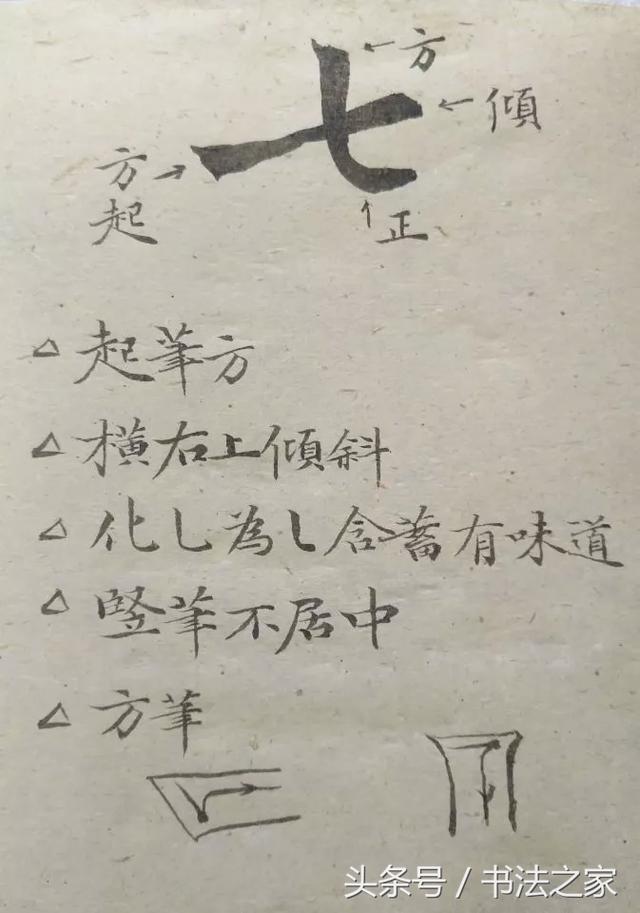 七
方
傾
方起
正
△起筆方
△橫右上傾斜
△化乚為㇄含蓄有味道
△竪筆不居中
△方筆
头条号/书法之家